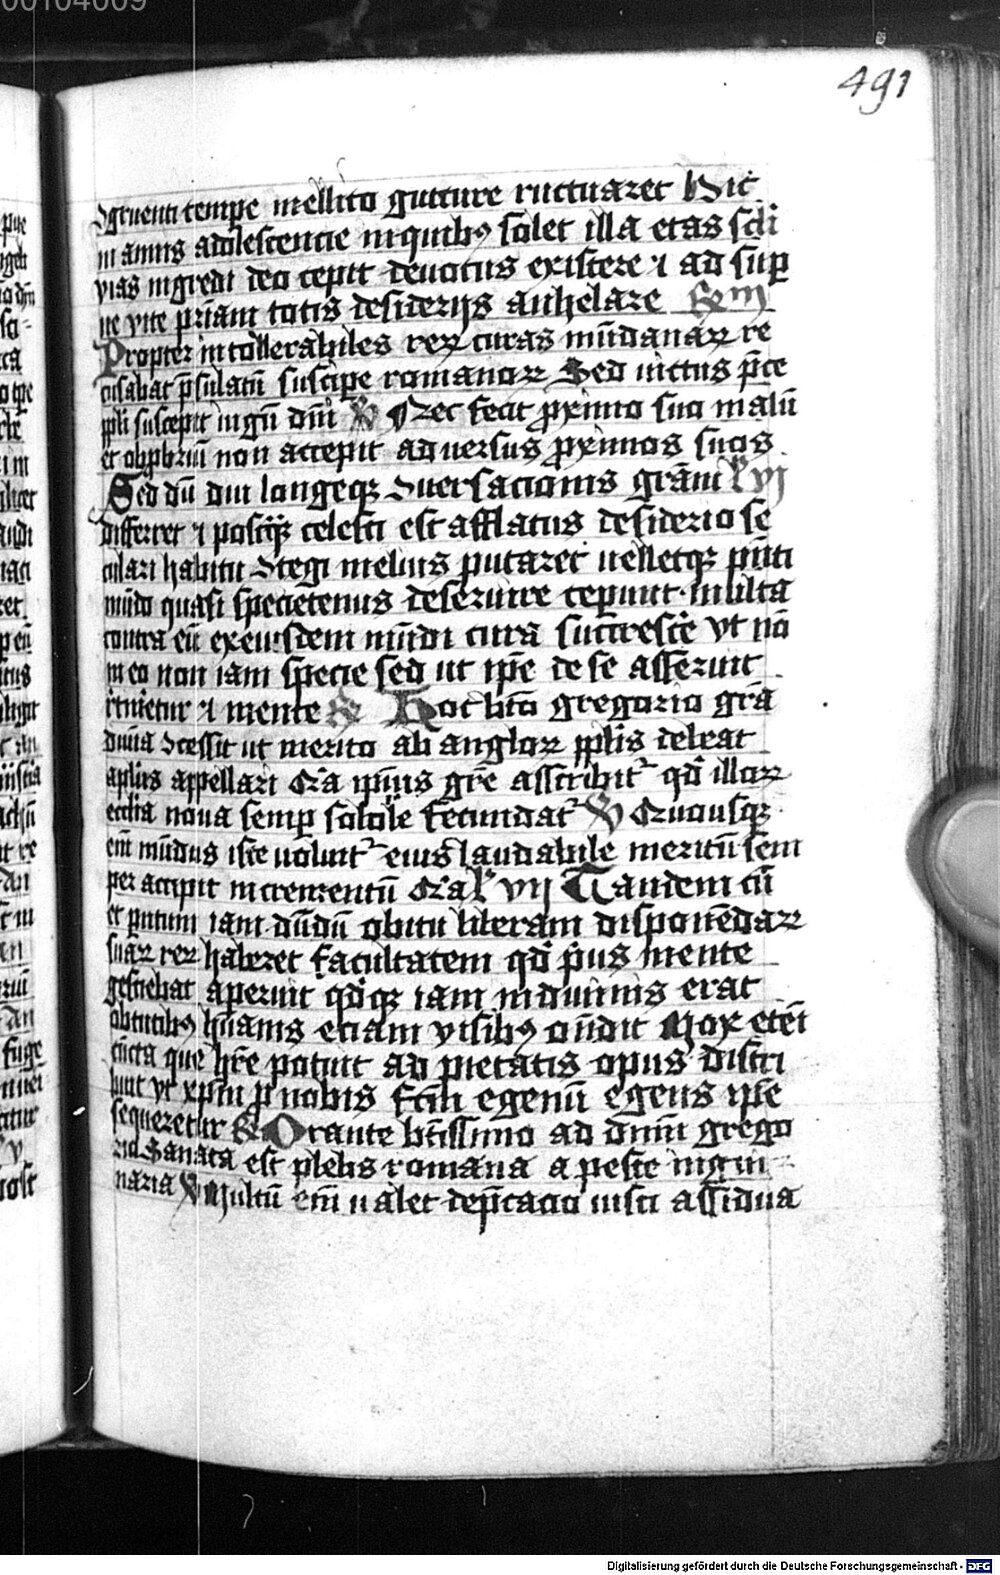 00104009
491
ꝯgruenti tempe mellito gutture ructuaret Hic
in annis adolescencie in quibꝯ solet illa etas scłi
vias ingredi deo cepit deuotus existere ⁊ ad sup̱
ne vite pr̄iam totis desiderijs anhelare
Propter intollerabiles reꝝ curas mūdanaꝝ re
cusabat p̄sulatū suscipe romanoꝝ Sed uictus p̄ce
ppłi suscepit
℣ Nec fecit ꝓximo suo malū
et obꝓbriū non accepit aduersus ꝓximos suos
Sed dū diu longeqꝫ ꝯuersacionis grām ℟ vj
differret ⁊ postqꝫ celesti est afflatus desiderio se
culari habitu ꝯtegi melius putaret uelletqꝫ pn̄ti
mūdo quasi specietenus deseruire ceperunt multa
contra eū ex eiusdem mūdi cura succrescere vt nō
in eo non iam specie sed ut ip̄e de se asseruit
retinetur ⁊ mente Hoc bt̄o gregorio grā
diuina ꝯcessit ut merito ab angloꝝ ppłis debeat
apłus appellari Cr̄a ip̄ius gr̄e asscribit᷑ qd̄ illoꝝ
eccłia noua semp̱ sobole fecundat᷑ ℣ Quousqꝫ
em̄ mūdus iste uoluit᷑ eius laudabile meritū sem
per accipit incrementū Cr̄a ℟ vij Tandem cū
et p̱ntum iam dūdū obitu liberam disponēdaꝝ
suaꝝ reꝝ haberet facultatem qd̄ p̄us mente
gestiebat aperuit qd̄qꝫ iam in diuinis erat
obtutibꝯ hūanis etiam visibꝯ on̄dit Mox eten̄i
cūcta que hr̄e potuit ad pietatis opus distri
buit vt xp̄m ꝓ nobis fc̄m egenū egens ip̄e
sequeretur ℟ Orante bt̄issimo ad dn̄m grego
rio Sanata est plebs romana a peste ingui
naria ℣ Multū em̄ ualet dep̄cacio iusti assidua
Digitalisierung gefördert durch die Deutsche Forschungsgemeinschaft - DFG